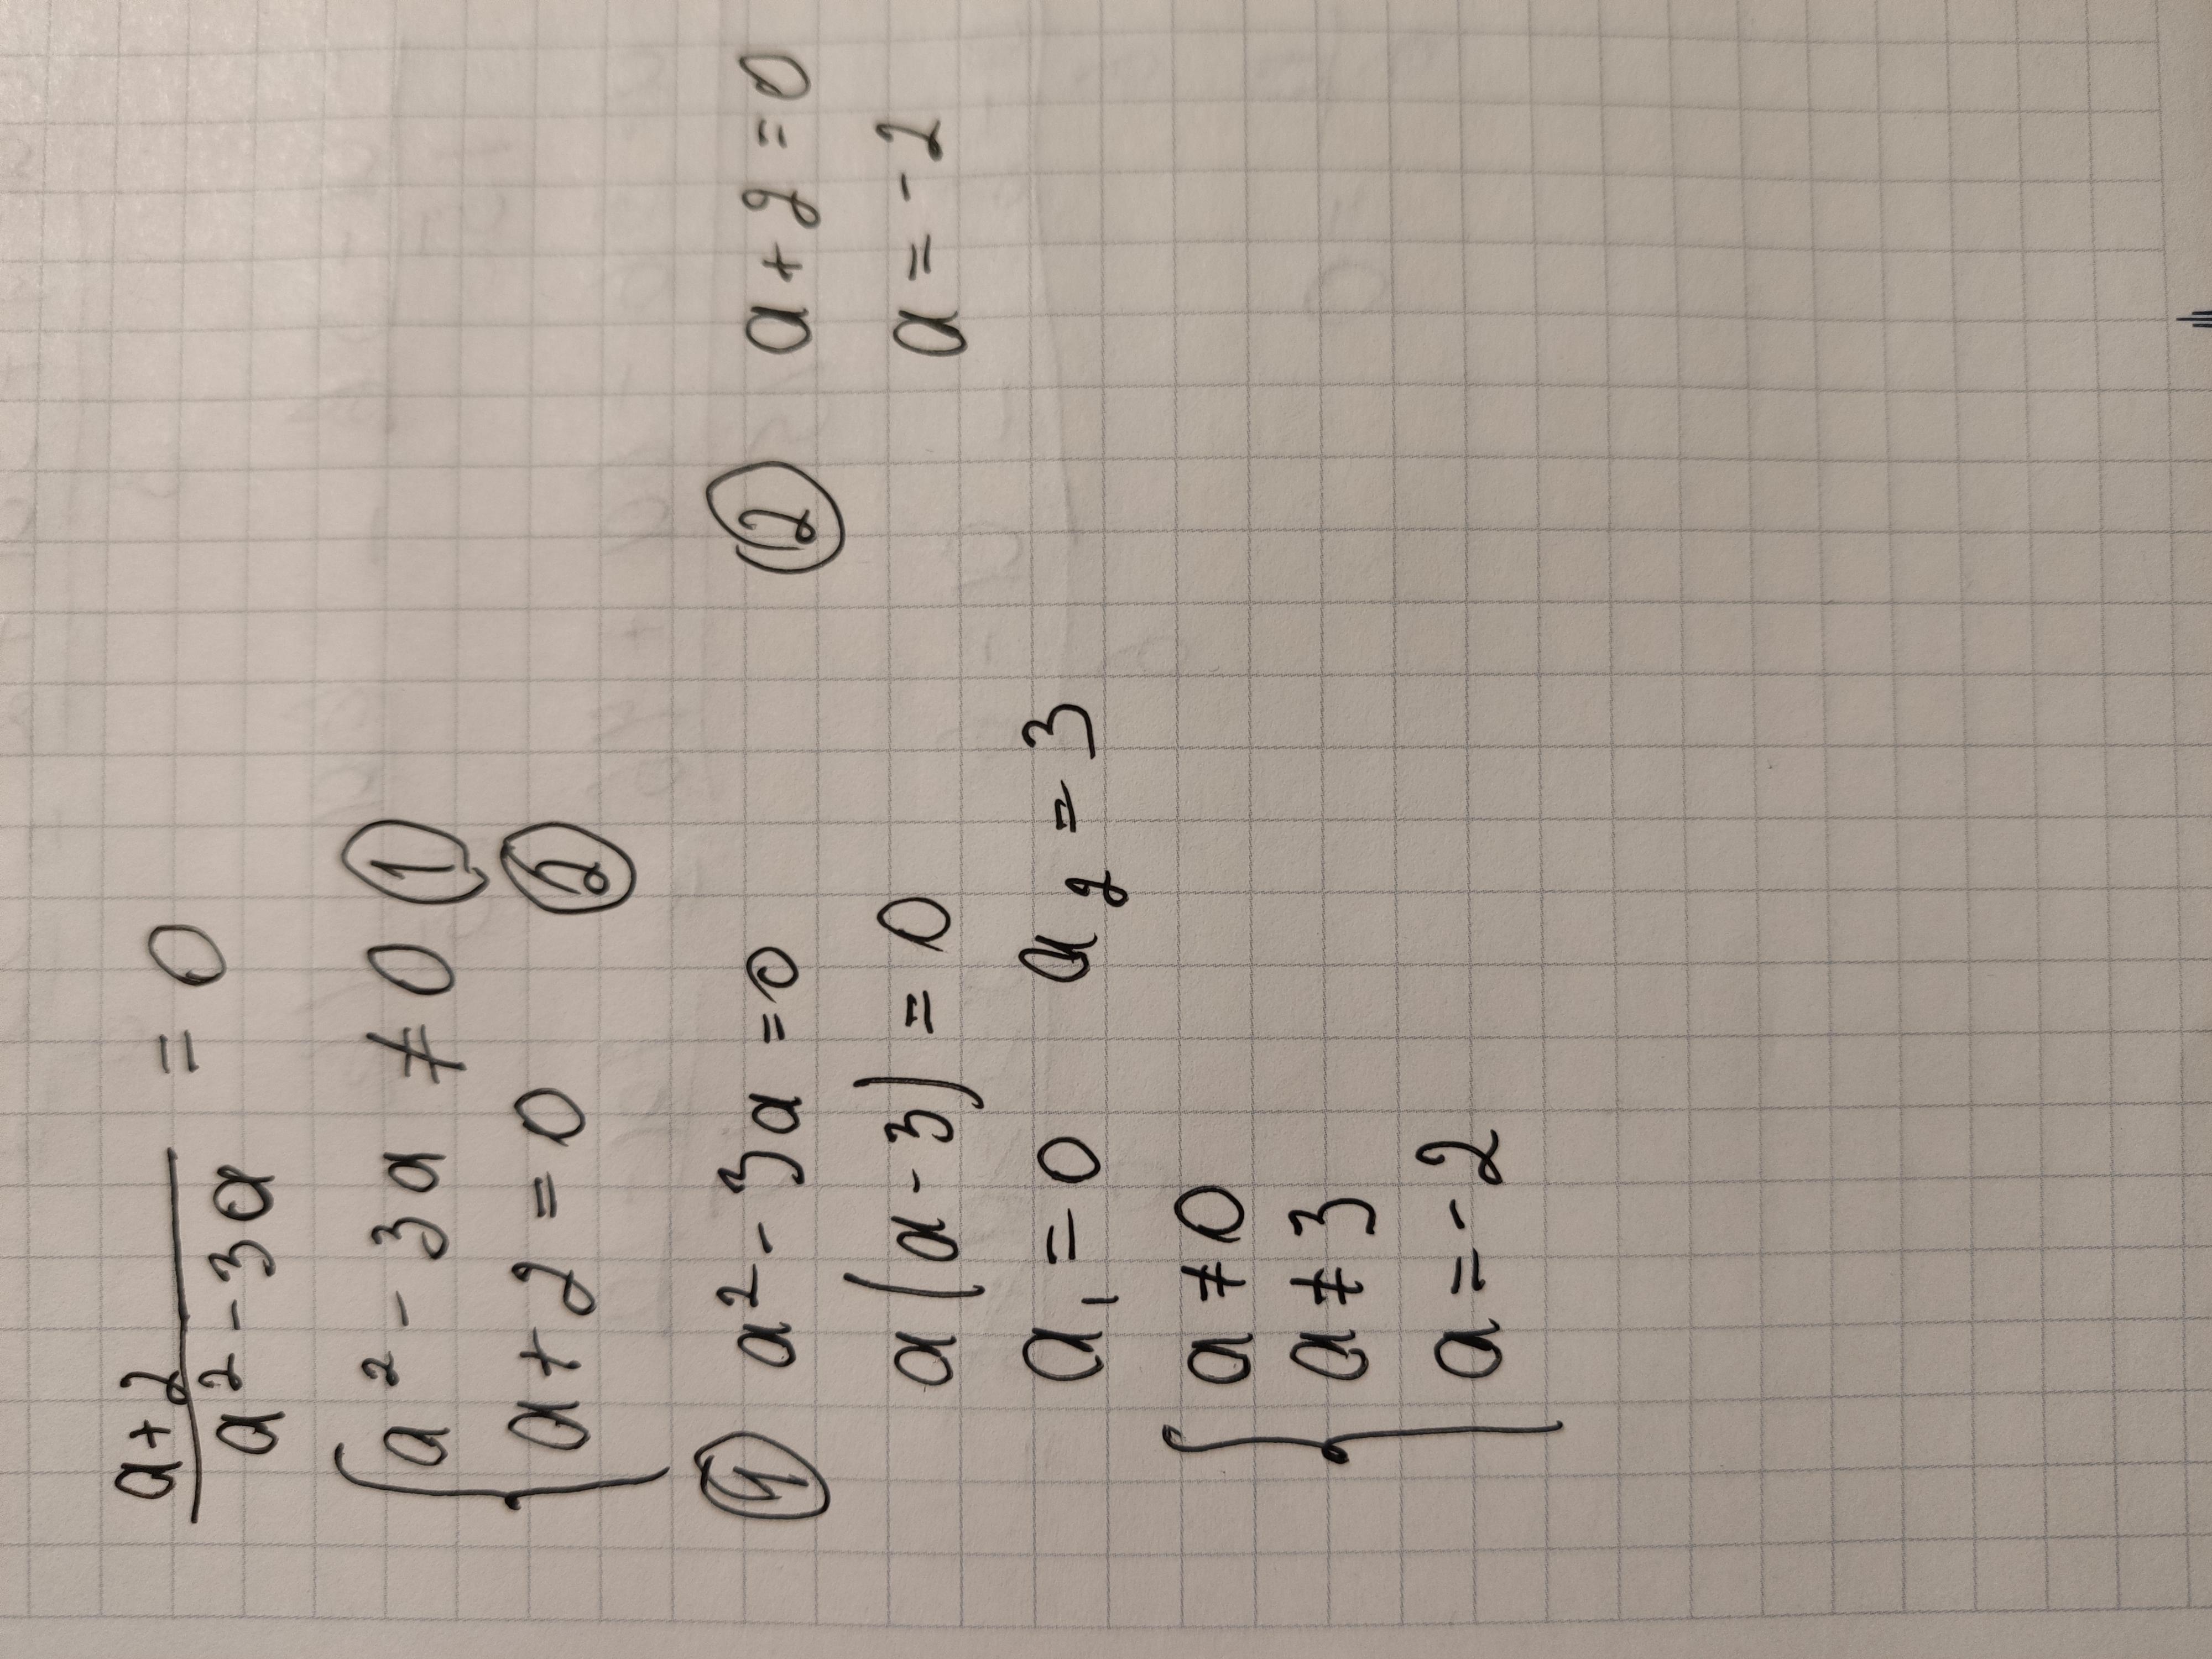 a+2 / a² - 3a = 0
{ a² - 3a ≠ 0 ①
a + 2 = 0 ②
① a² - 3a = 0
a (a - 3) = 0
a₁ = 0 a₂ = 3
② a + 2 = 0
a = -2
{ a ≠ 0
a ≠ 3
a = -2